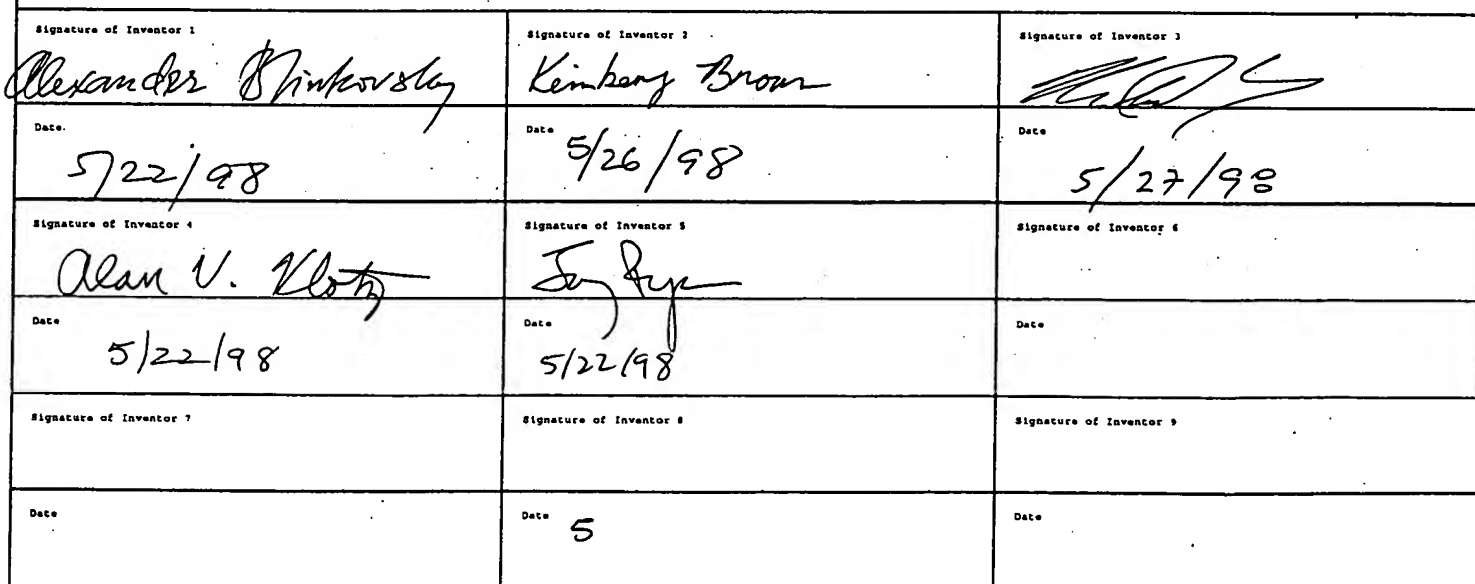 Signature of Inventor 1
Alexander Blinkovsky
Signature of Inventor 2
Kimberly Brown
Signature of Inventor 3
Date
5/22/98
Date
5/26/98
Date
5/27/98
Signature of Inventor 4
Alan V. Klotz
Signature of Inventor 5
Signature of Inventor 6
Date
5/22/98
Date
5/22/98
Date
Signature of Inventor 7
Signature of Inventor 8
Signature of Inventor 9
Date
Date
5
Date